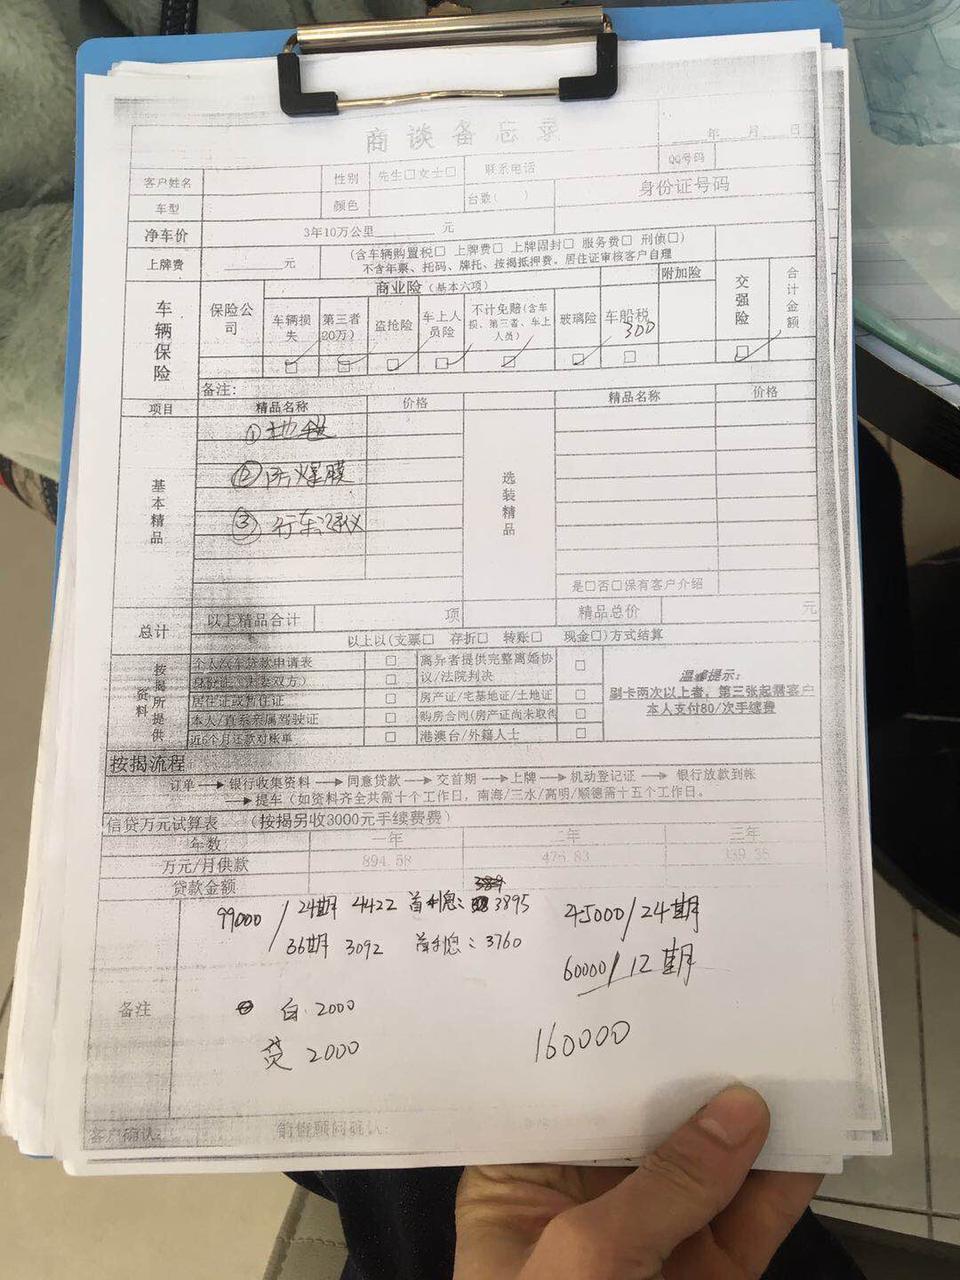 商谈备忘录
年 月 日
客户姓名 性别 先生□女士□ 联系电话 QQ号码
车型 颜色 台数( ) 身份证号码
净车价 3年10万公里 元
上牌费 元 (含车辆购置税□ 上牌费□ 上牌固封□ 服务费□ 刑侦□)
不含年票、托码、牌托、按揭抵押费。居住证审核客户自理
车辆保险 保险公司 商业险(基本六项) 附加险 交强险 合计金额
车辆损失 第三者20万) 盗抢险 车上人员险 不计免赔(含车损、第三者、车上人员) 玻璃险 车船税
300
□ □ □ □ □ □ □ □
备注:
项目 精品名称 价格 精品名称 价格
基本精品 选装精品
①地毯
②防爆膜
③行车记录仪
是□否□保有客户介绍
总计 以上精品合计 项 精品总价 元
以上以(支票□ 存折□ 转账□ 现金□)方式结算
按揭所提供资料
个人汽车贷款申请表 □ 离异者提供完整离婚协议/法院判决 □
身份证(夫妻双方) □
居住证或暂住证 □ 房产证/宅基地证/土地证 □
本人/直系亲属驾驶证 □ 购房合同(房产证尚未取得 □
近6个月还款对帐单 □ 港澳台/外籍人士 □
温馨提示:
刷卡两次以上者，第三张起需客户
本人支付80/次手续费
按揭流程
订单→银行收集资料→同意贷款→交首期→上牌→机动登记证→银行放款到帐
→提车(如资料齐全共需十个工作日，南海/三水/高明/顺德需十五个工作日。
信贷万元试算表 (按揭另收3000元手续费费)
年数 一年 二年 三年
万元/月供款 894.58 475.83 339.35
贷款金额
备注
99000/24期 4422 首利息:3895
36期 3092 首利息:3760
45000/24期
60000/12期
白 2000
贷 2000
160000
客户确认: 销售顾问确认: